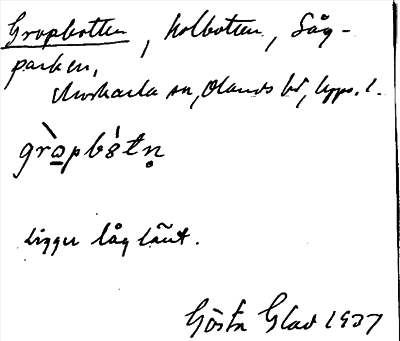 Gropbotten, Kolbotten, Såg-
parken,
Morkarla sn, Olands hd, Upps. l.
gròpbótn
Ligger låglänt.
Gösta Glad 1937